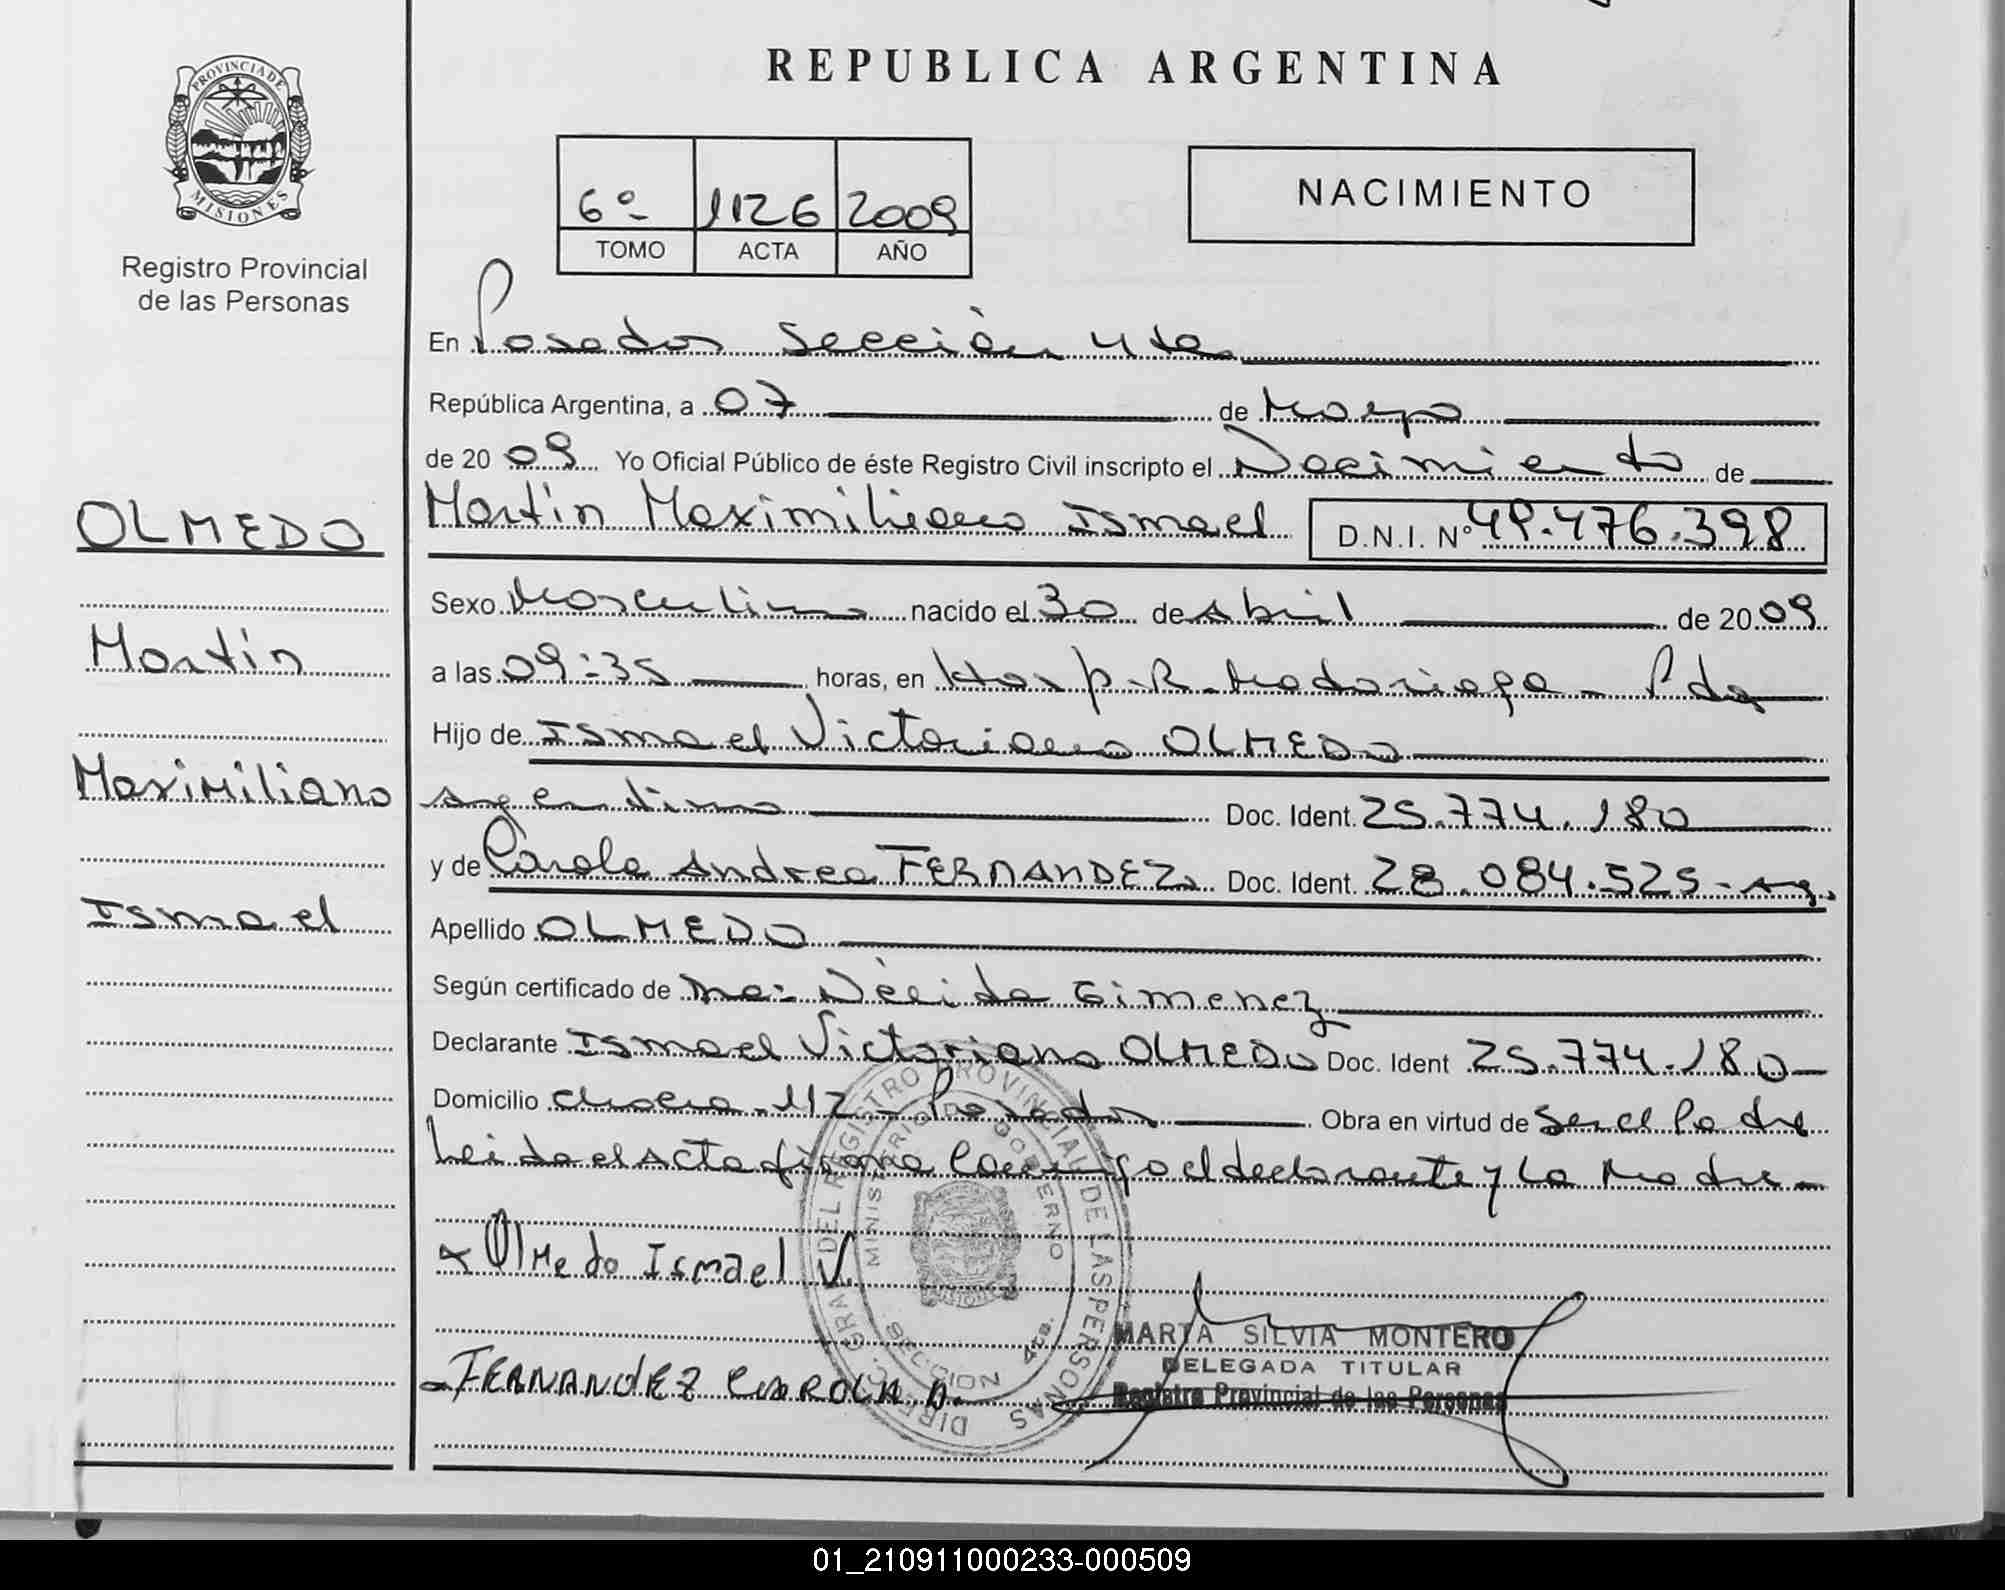 REPUBLICA ARGENTINA
PROVINCIA DE
MISIONES
Registro Provincial
de las Personas
6º 1126 2009
TOMO ACTA AÑO
NACIMIENTO
En Posadas Sección 4ta
República Argentina, a 07 de Mayo
de 20 09 Yo Oficial Público de éste Registro Civil inscripto el Nacimiento de
OLMEDO
Martín Maximiliano Ismael D.N.I. Nº 49.476.398
Sexo Masculino nacido el 30 de Abril de 20 09
Martín
a las 09:35 horas, en Hosp. R. Madariaga - Pdas
Hijo de Ismael Victoriano OLMEDO
Maximiliano
argentino Doc. Ident. 25.774.180
y de Carola Andrea FERNANDEZ Doc. Ident. 28.084.525 - Arg.
Ismael
Apellido OLMEDO
Según certificado de Nélida Gimenez
Declarante Ismael Victoriano OLMEDO Doc. Ident 25.774.180
Domicilio chacra 112 - Posadas Obra en virtud de Ser el Padre
Leida el Acta firma Conmigo el declarante y La Madre -
Olmedo Ismael V.
FERNANDEZ CAROLA A.
DIREC. GRAL DEL REGISTRO PROVINCIAL DE LAS PERSONAS
MINISTERIO DE GOBIERNO
SECCION 4ta.
MARTA SILVIA MONTERO
DELEGADA TITULAR
Registro Provincial de las Personas
01_210911000233-000509